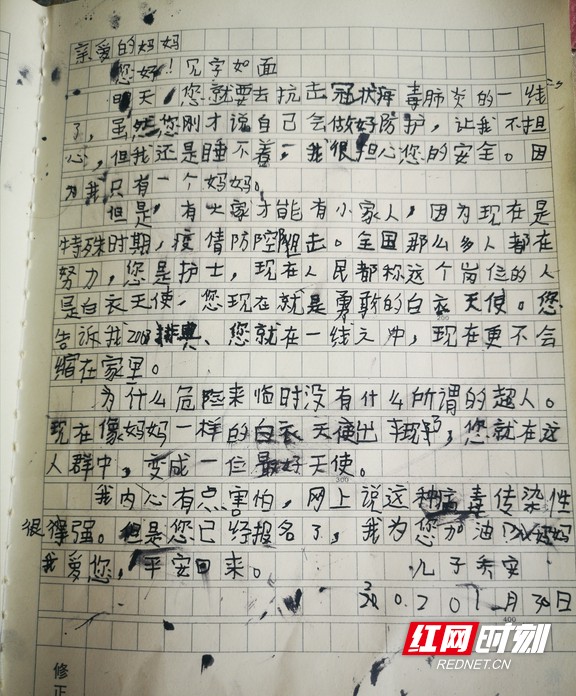 亲爱的妈妈
您好！见字如面
明天，您就要去抗击冠状病毒肺炎的一线
了，虽然您刚才说自己会做好防护，让我不担
心，但我还是睡不着，我很担心您的安全。因
为我只有一个妈妈。
但是，有大家才能有小家人，因为现在是
特殊时期，疫情防控阻击。全国那么多人都在
努力，您是护士，现在人民都称这个岗位的人
是白衣天使，您现在就是勇敢的白衣天使。您
告诉我2003、您就在一线之中，现在更不会
缩在家里。
为什么危险来临时没有什么所谓的超人。
现在像妈妈一样的白衣天使出现，您就在这
人群中，变成一位最好天使。
我内心有点害怕，网上说这种病毒传染性
很强。但是您已经报名了，我为您加油！妈妈
我爱您，平安回来。 儿子
2020 1月30日
300
400
修正
红网时刻
REDNET.CN